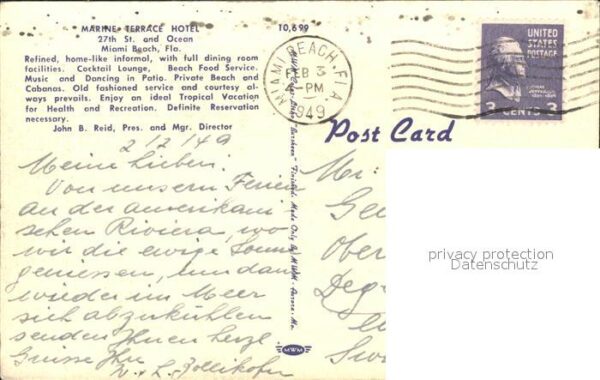 MARINE TERRACE HOTEL
27th St. and Ocean
Miami Beach, Fla.
Refined, home-like informal, with full dining room
facilities. Cocktail Lounge, Beach Food Service.
Music and Dancing in Patio. Private Beach and
Cabanas. Old fashioned service and courtesy al-
ways prevails. Enjoy an ideal Tropical Vacation
for Health and Recreation. Definite Reservation
necessary.
John B. Reid, Pres. and Mgr. Director
10,699
MIAMI BEACH, FLA.
FEB 3
-PM
1949
UNITED STATES
POSTAGE
3 CENTS 3
Post Card
2/2/49
Meine Lieben:
Von unsern Ferien
an der amerikani
schen Riviera, wo
wir die ewige Sonne
geniessen, um dan
wieder im Meer
sich abzukühlen
senden Ihnen herzl.
Grüsse Ihr
W. L. Zollikofer
Made Only By MWM - Aurora - Mo.
MWM
privacy protection
Datenschutz